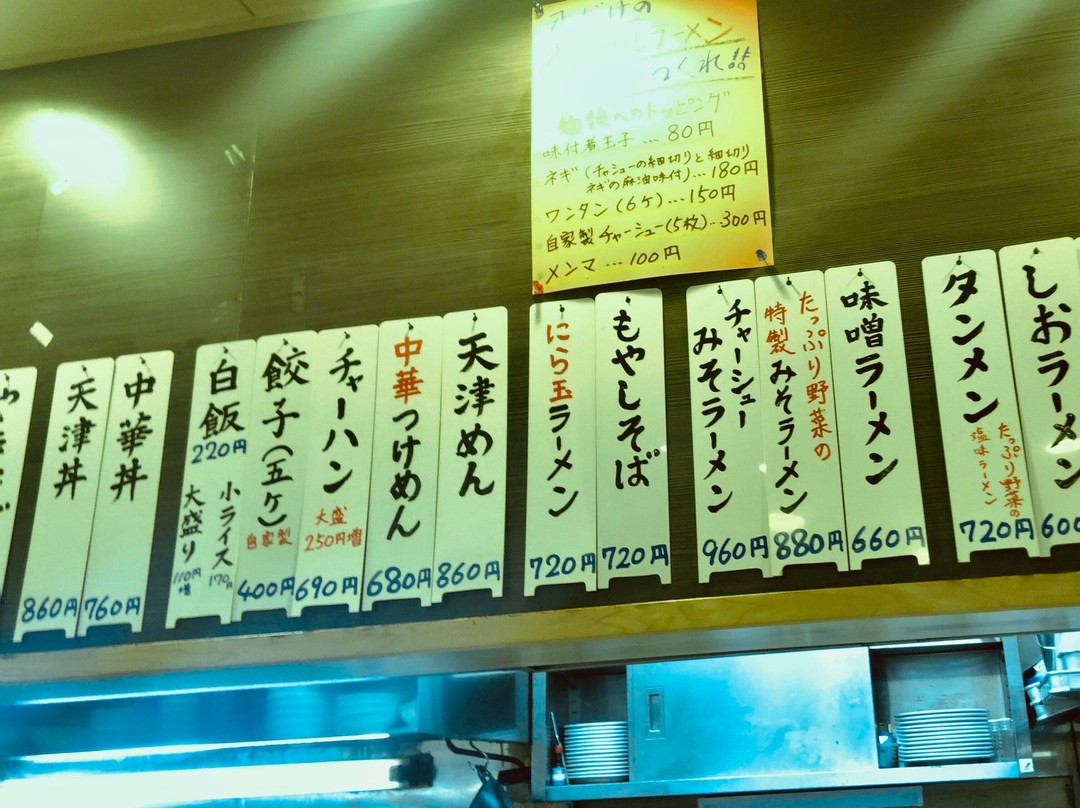 だけの
ラーメン
つくれ!!
麺類へのトッピング
味付煮玉子…80円
ネギ(チャシューの細切りと細切り
ネギの麻油味付)…180円
ワンタン(6ケ)…150円
自家製チャーシュー(5枚)…300円
メンマ…100円
しおラーメン
タンメン
たっぷり野菜の
塩味ラーメン
720円
味噌ラーメン
660円
たっぷり野菜の
特製みそラーメン
880円
チャーシュー
みそラーメン
960円
もやしそば
720円
にら玉ラーメン
720円
天津めん
860円
中華つけめん
680円
チャーハン
大盛
250円増
690円
餃子(五ケ)
自家製
400円
白飯
220円
小ライス
170円
大盛り
110円
増
中華丼
760円
天津丼
860円